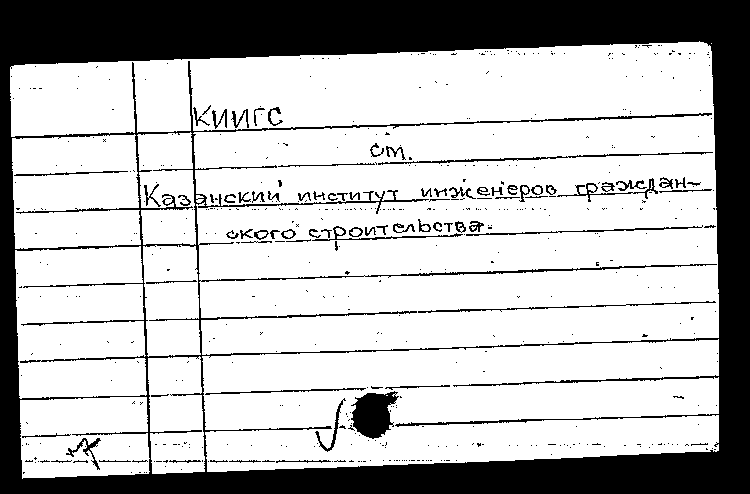 КИИГС
см.
Казанский институт инженеров граждан-
ского строительства.